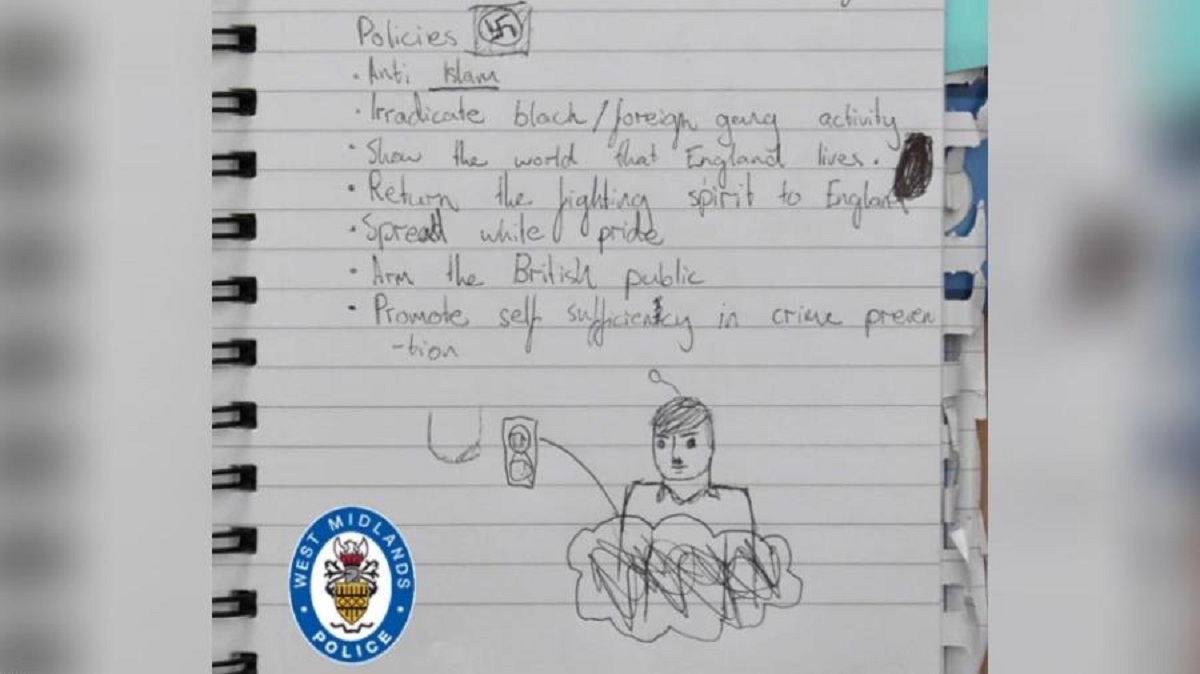 Policies
· Anti Islam
· Irradicate black/foreign gang activity
· Show the world that England lives.
· Return the fighting spirit to England
· Spread white pride
· Arm the British public
· Promote self sufficienty in crime preven
-tion
WEST MIDLANDS
POLICE